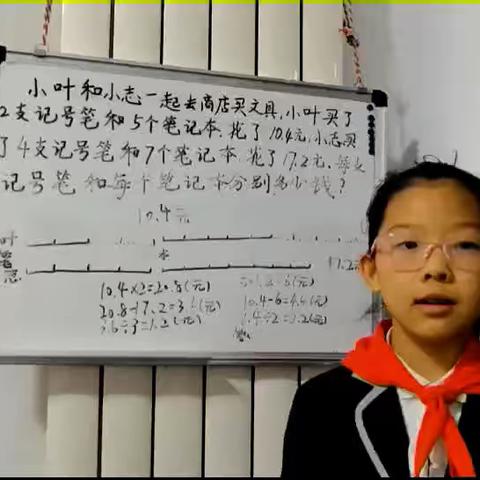 小叶和小志一起去商店买文具，小叶买了
2支记号笔和5个笔记本，花了10.4元，小志买
了4支记号笔和7个笔记本，花了17.2元，每支
记号笔和每个笔记本分别多少钱？
10.4元
叶
笔 本
志 17.2
10.4×2=20.8(元)
20.8-17.2=3.6(元)
3.6÷3=1.2(元)
10.4-6=4.4(元)
4.4÷2=2.2(元)